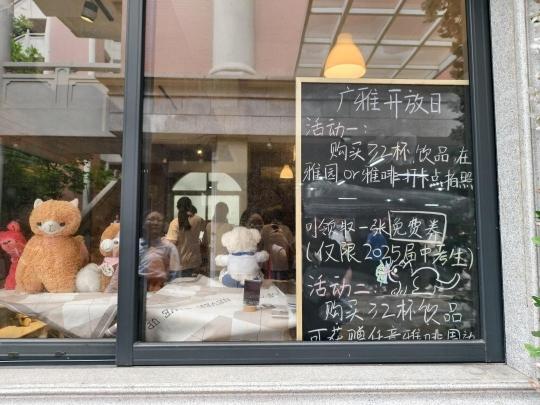 广雅开放日
活动一:
购买32杯饮品在
雅园or雅啡打卡点拍照
可领取一张免费券
(仅限2025届中考生)
活动二:
购买32杯饮品
可获赠任意雅啡周边
NEVER